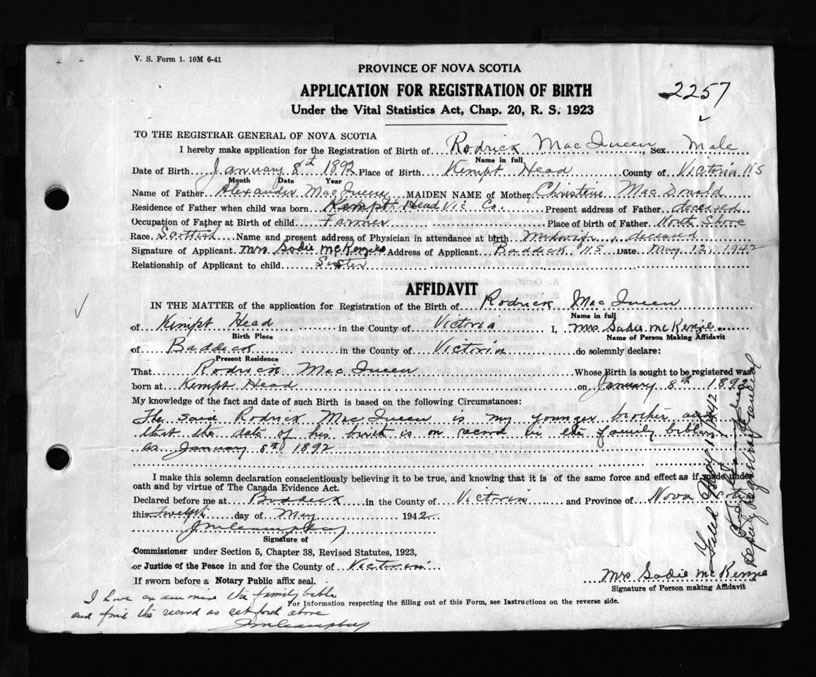 V. S. Form 1. 10M 6-41
PROVINCE OF NOVA SCOTIA
APPLICATION FOR REGISTRATION OF BIRTH
2257
Under the Vital Statistics Act, Chap. 20, R. S. 1923
TO THE REGISTRAR GENERAL OF NOVA SCOTIA
I hereby make application for the Registration of Birth of Rodrick MacQueen Sex Male
Name in full
Date of Birth January 8th 1892 Place of Birth Kempt Head County of Victoria NS
Month Date Year
Name of Father Alexander MacQueen MAIDEN NAME of Mother Christine MacDonald
Residence of Father when child was born Kempt Head Vic Co. Present address of Father deceased
Occupation of Father at Birth of child Farmer Place of birth of Father North Shore
Race Scottish Name and present address of Physician in attendance at birth Midwife, deceased
Signature of Applicant Mrs Sadie McKenzie Address of Applicant Baddeck NS Date May 12, 1942
Relationship of Applicant to child Sister
AFFIDAVIT
IN THE MATTER of the application for Registration of the Birth of Rodrick MacQueen
Name in full
of Kempt Head in the County of Victoria I, Mrs Sadie McKenzie
Birth Place Name of Person Making Affidavit
of Baddeck in the County of Victoria do solemnly declare:
Present Residence
That Rodrick MacQueen Whose Birth is sought to be registered was
born at Kempt Head on January 8th 1892
My knowledge of the fact and date of such Birth is based on the following Circumstances:
The said Rodrick MacQueen is my younger brother and
that the date of his birth is on record in the family bible
as January 8th 1892
I make this solemn declaration conscientiously believing it to be true, and knowing that it is of the same force and effect as if made under
oath and by virtue of The Canada Evidence Act.
Declared before me at Baddeck in the County of Victoria and Province of Nova Scotia
this Twelfth day of May 1942
Signature of
Commissioner under Section 5, Chapter 38, Revised Statutes, 1923,
or Justice of the Peace in and for the County of Victoria
If sworn before a Notary Public affix seal.
Mrs Sadie McKenzie
Signature of Person making Affidavit
For Information respecting the filling out of this Form, see Instructions on the reverse side.
I have examined the family bible
and find the record as set forth above
Filed May 13/1942
Deputy Registrar General